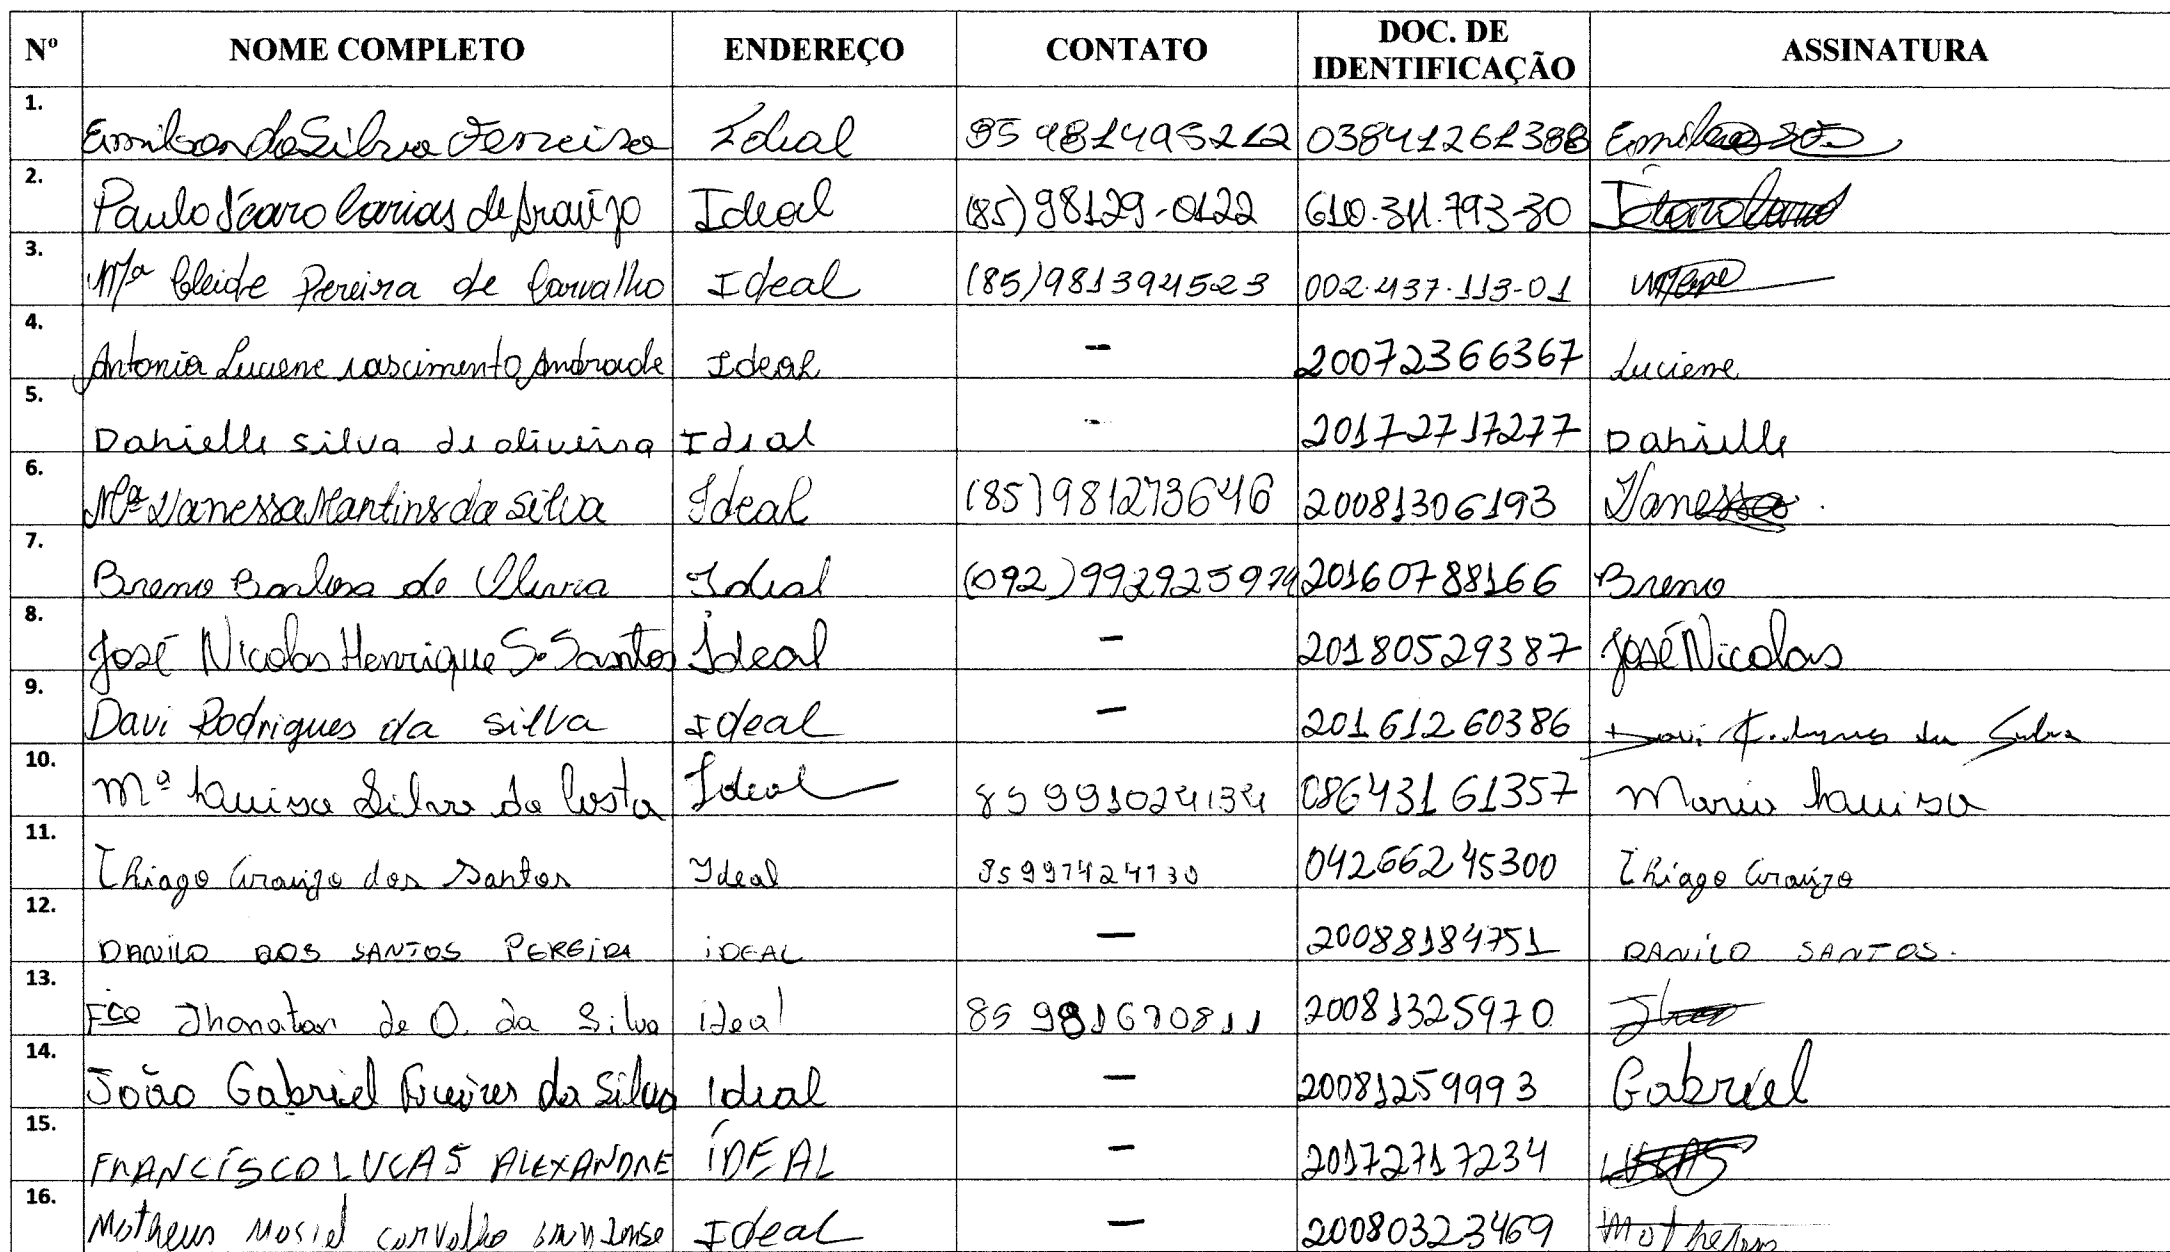 Nº NOME COMPLETO ENDEREÇO CONTATO DOC. DE IDENTIFICAÇÃO ASSINATURA
1. Emilson da Silva Ferreira Ideal 85 981495212 03841261388
2. Paulo Ícaro Carias de Araújo Ideal (85) 98129-0122 610.311.793-30
3. Mª Cleide Pereira de Carvalho Ideal (85)981394523 002.437.113-01
4. Antonia Luciene nascimento Andrade Ideal - 20072366367 Luciene
5. Danielle silva de oliveira Ideal - 20172717277 Danielle
6. Mª Vanessa Martins da Silva Ideal (85)981273646 20081306193 Vanessa
7. Breno Barbosa de Ideal (092)992925974 20160788166 Breno
8. José Nicolas Henrique S. Santos Ideal - 20180529387 José Nicolas
9. Davi Rodrigues da silva Ideal - 20161260386 Davi Rodrigues da Silva
10. Mª Lauisa Silva da Costa Ideal 85 991024134 08643161357 Maria Lauisa
11. Thiago Araújo dos Santos Ideal 04266245300 Thiago Araújo
12. DANILO DOS SANTOS PEREIRA iDEAL - 20088184751 DANILO SANTOS.
13. Fco Jhonatan de O. da Silva ideal 85 981670811 20081325970
14. João Gabriel da Silva Ideal - 20081259993 Gabriel
15. FRANCÍSCO LUCAS ALEXANDRE ÍDEAL - 20172717234 LUCAS
16. Matheus Maciel Carvalho Ideal - 20080323469 Matheus